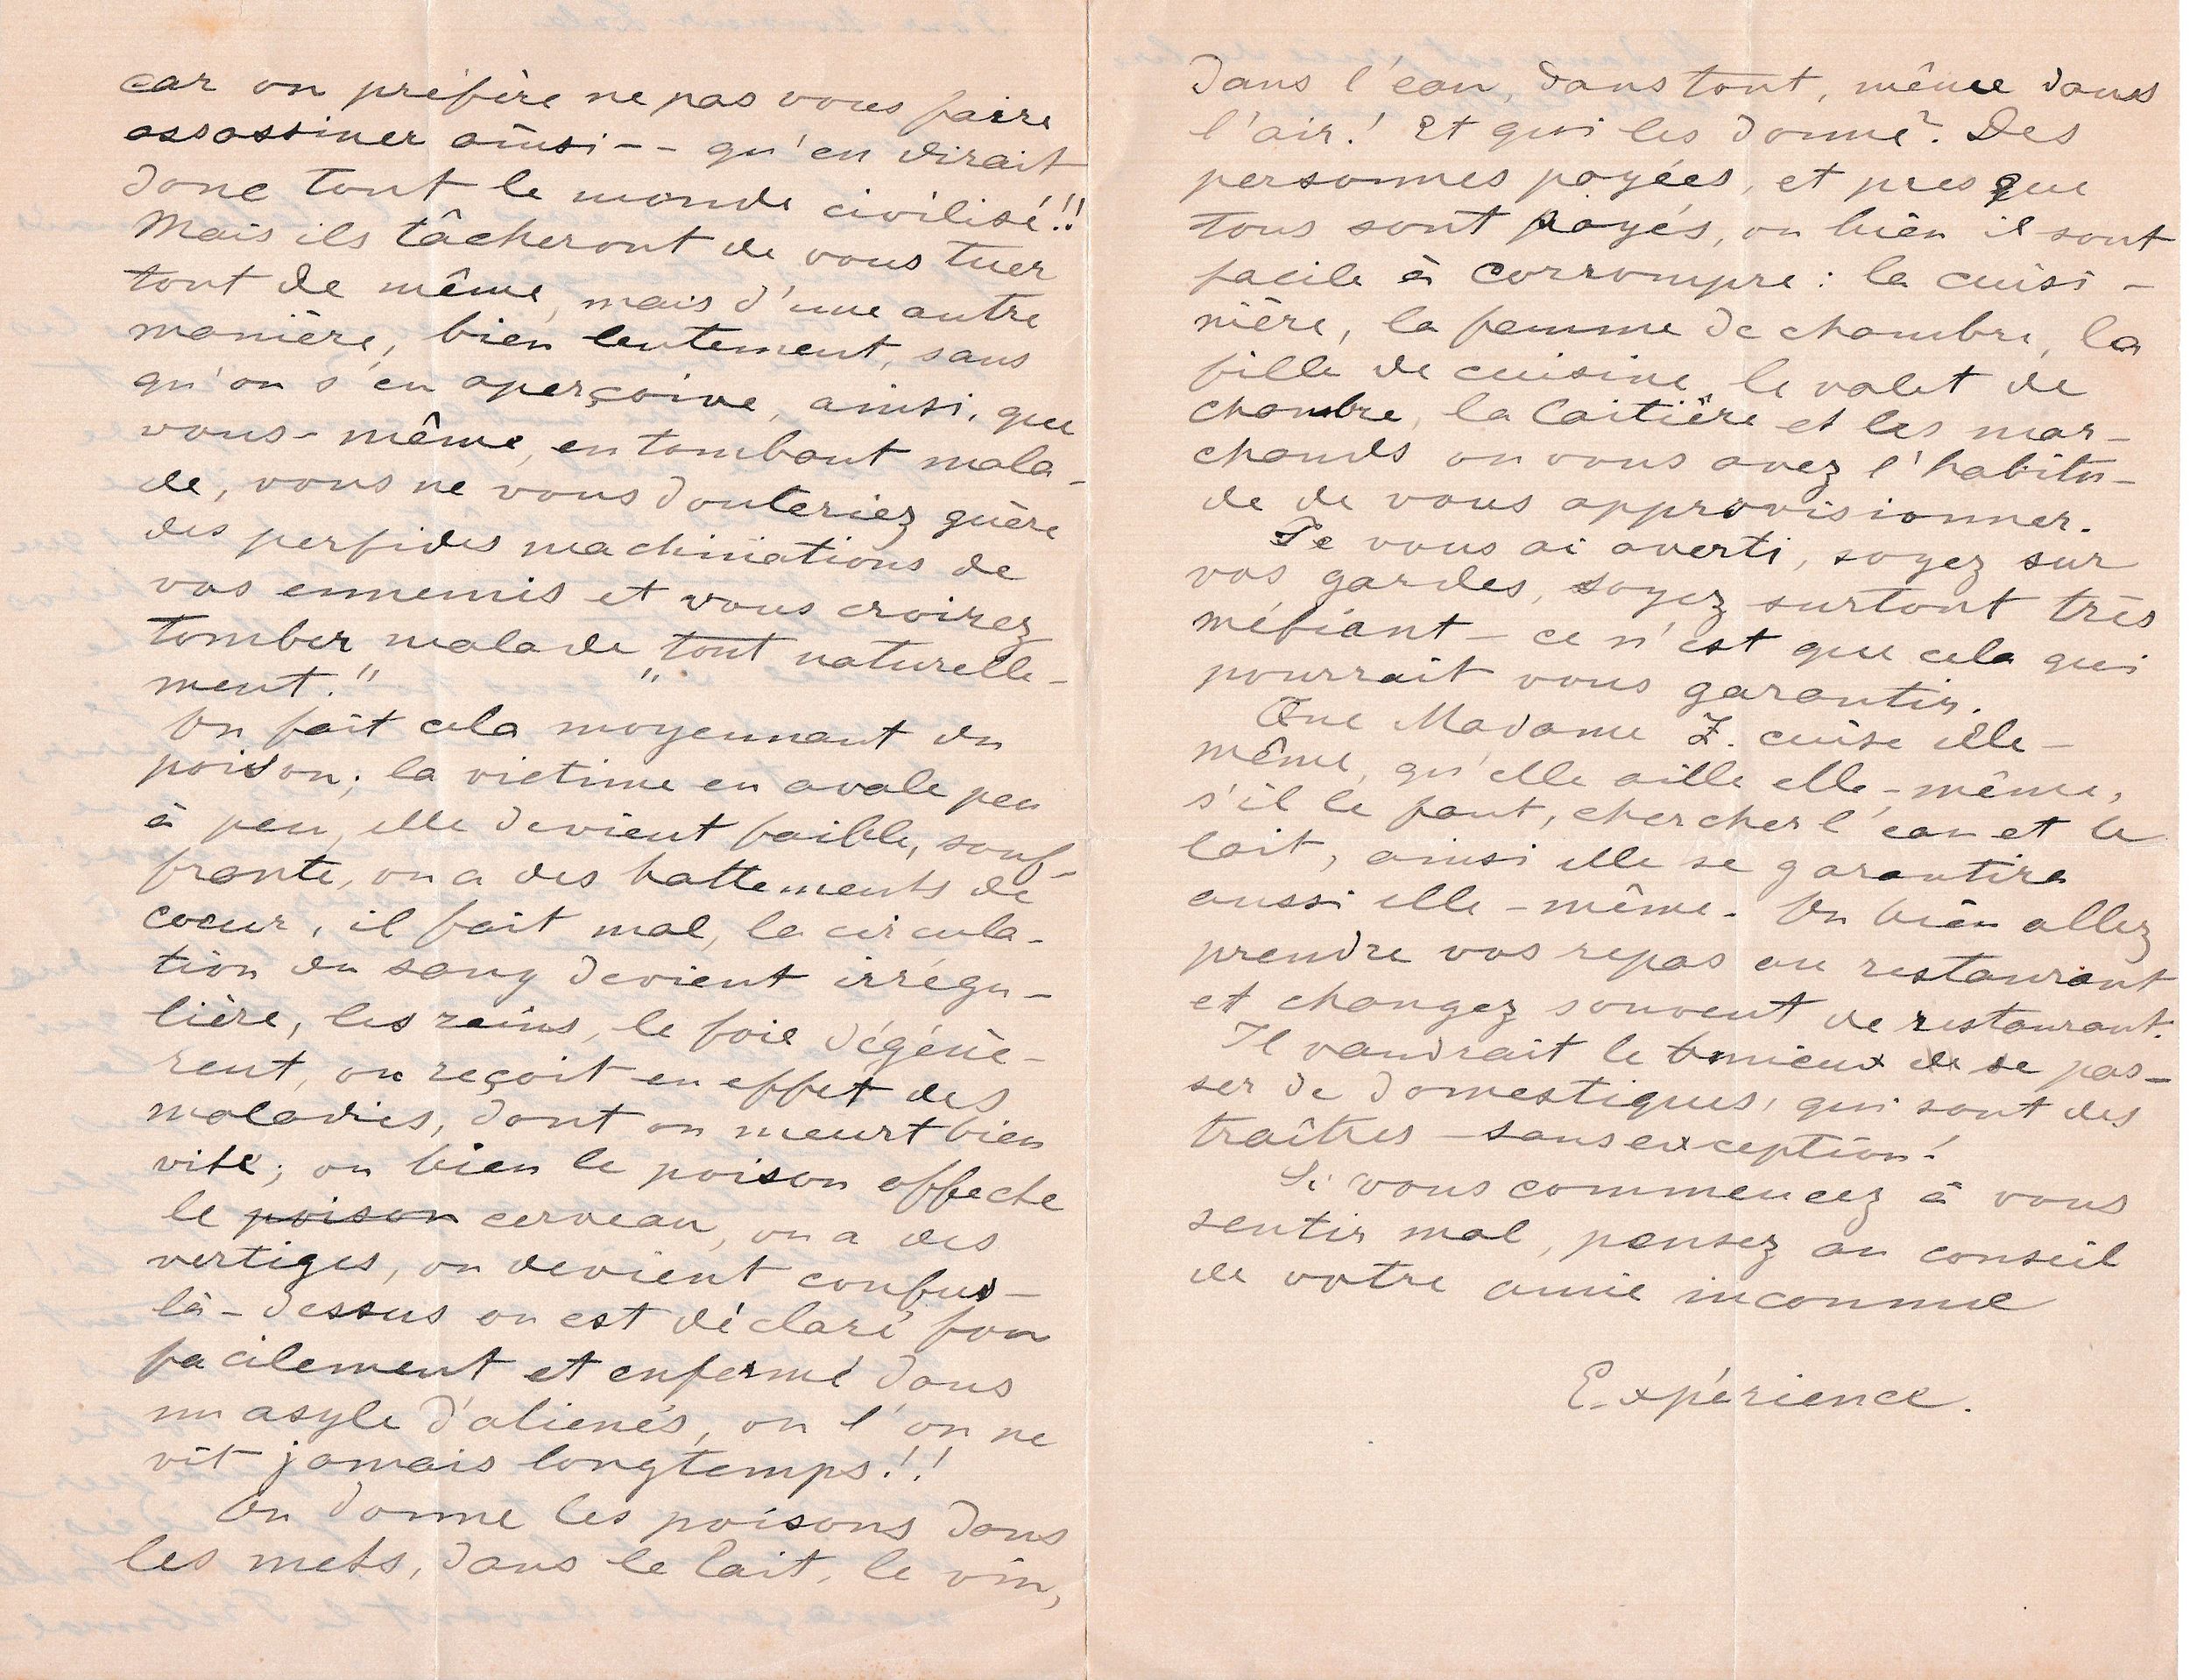 car on préfère ne pas vous faire
assassiner ainsi -- qu'en dirait
donc tout le monde civilisé!!
Mais ils tâcheront de vous tuer
tout de même, mais d'une autre
manière, bien lentement, sans
qu'on s'en aperçoive, ainsi, que
vous-même, en tombant mala-
de, vous ne vous douteriez guère
des perfides machinations de
vos ennemis et vous croirez
tomber malade „tout naturelle-
ment."
On fait cela moyennant du
poison; la victime en avale peu
à peu, elle devient faible, souf-
frante, on a des battements de
coeur, il fait mal, la circula-
tion du sang devient irrégu-
lière, les reins, le foie dégénè-
rent, on reçoit en effet des
maladies, dont on meurt bien
vite; ou bien le poison affecte
le poison cerveau, on a des
vertiges, on devient confus -
là-dessus on est déclaré fou
facilement et enfermé dans
un asyle d'aliénés, où l'on ne
vit jamais longtemps!!
On donne les poisons dans
les mets, dans le lait, le vin,
dans l'eau, dans tout, même dans
l'air! Et qui les donne? Des
personnes payées, et presque
tous sont payés, ou bien il sont
facile à corrompre: la cuisi-
nière, la femme de chambre, la
fille de cuisine, le valet de
chambre, la laitière et les mar-
chands ou vous avez l'habitu-
de de vous approvisionner.
Je vous ai averti, soyez sur
vos gardes, soyez surtout très
méfiant - ce n'est que cela qui
pourrait vous garantir.
Que Madame Z. cuise elle-
même, qu'elle aille elle-même,
s'il le faut, chercher l'eau et le
lait, ainsi elle se garantira
aussi elle-même. Ou bien allez
prendre vos repas au restaurant
et changez souvent de restaurant.
Il vaudrait le mieux de se pas-
ser de domestiques, qui sont des
traîtres - sans exception!
Si vous commencez à vous
sentir mal, pensez au conseil
de votre amie inconnue
Expérience.